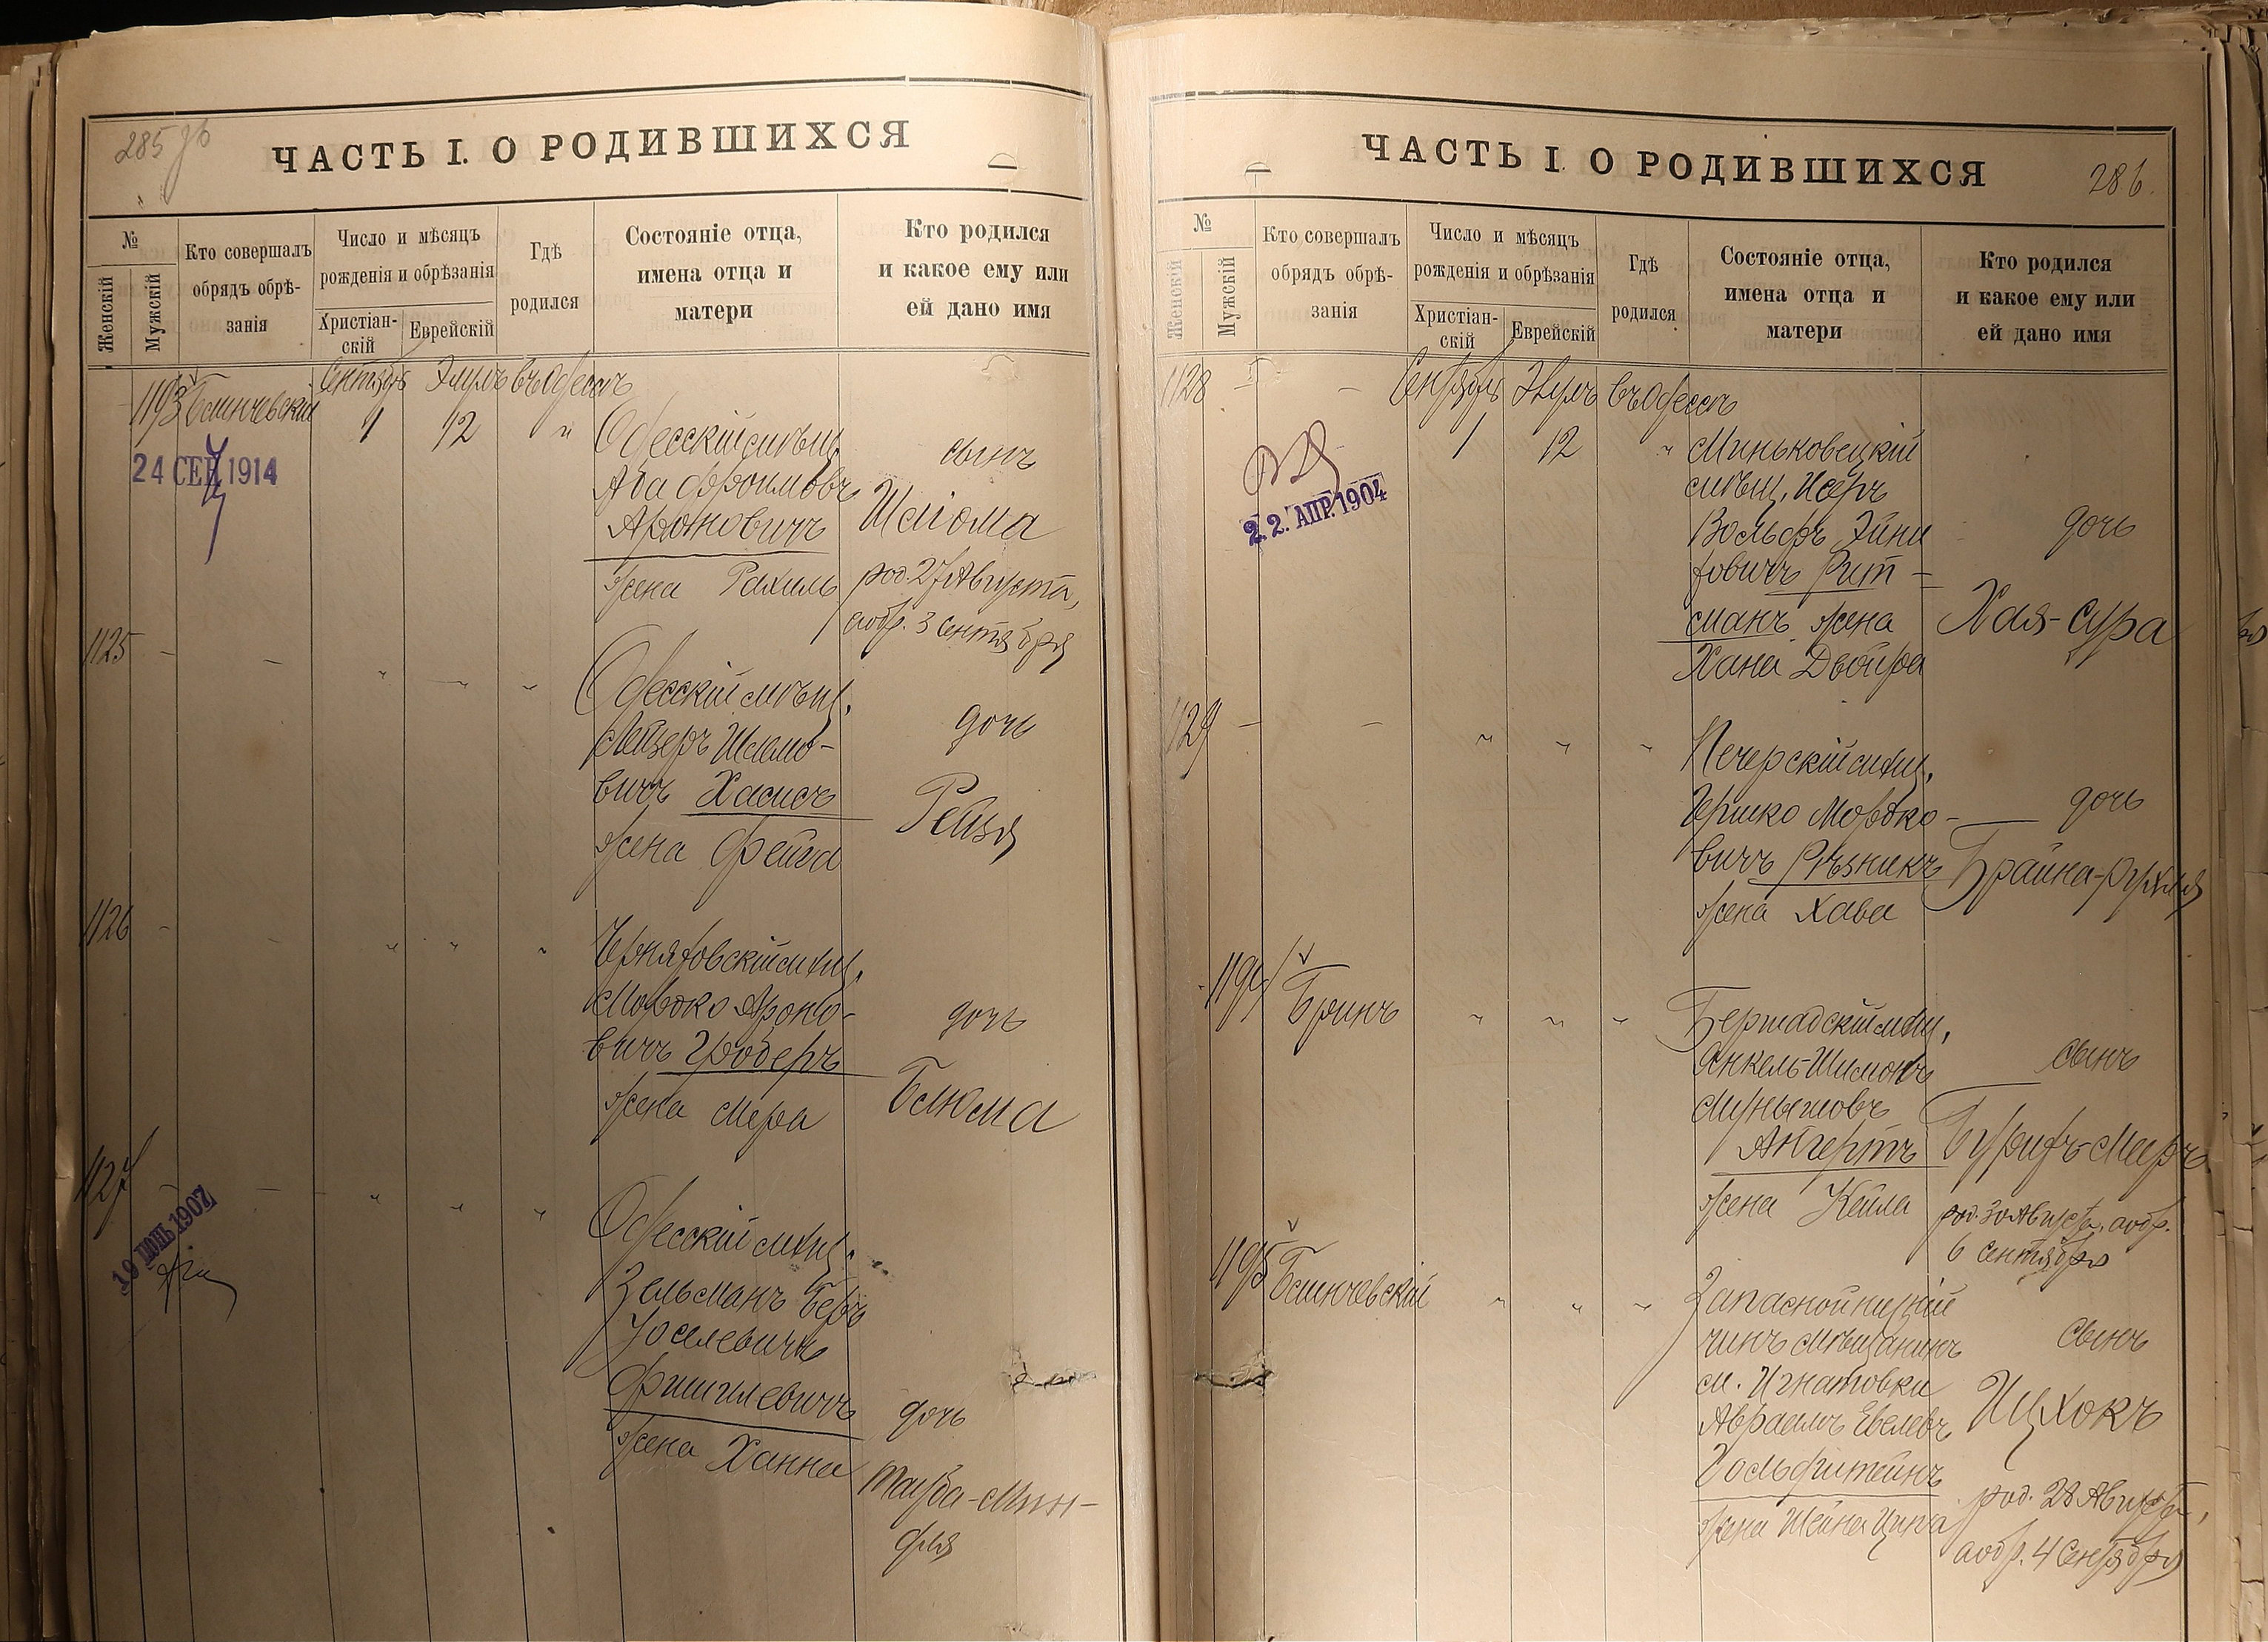 285 об
ЧАСТЬ I. О РОДИВШИХСЯ
№
Женскій
Мужскій
Кто совершалъ
обрядъ обрѣ-
занія
Число и мѣсяцъ
рожденія и обрѣзанія
Христіан-
скій
Еврейскій
Гдѣ
родился
Состояніе отца,
имена отца и
матери
Кто родился
и какое ему или
ей дано имя
Сентябрь Элулъ въ Одессѣ
1193 Блинчевскій 1 12 "
24 СЕН 1914
Одесскій мѣщ.
Аба Фроимовъ
Ароновичъ
жена Рахиль
сынъ
Шлiома
род. 27 Августа,
а обр. 3 Сентября
1125 - - " - "
Одесскій мѣщ.
Лейзеръ Шлемо-
вичъ Хасисъ
жена Фейга
дочь
Рейзя
1126 - - " " "
Черняховскій мѣщ.
Мордко Ароно-
вичъ Гродеръ
жена Мера
дочь
Блюма
1127 - " " "
19 ІЮНЬ 1907
Одесскій мѣщ.
Зельманъ Беръ
Іоселевичъ
Фишилевичъ
жена Ханна
дочь
Тауба-Мин-
для
ЧАСТЬ I. О РОДИВШИХСЯ
286.
№
Женскій
Мужскій
Кто совершалъ
обрядъ обрѣ-
занія
Число и мѣсяцъ
рожденія и обрѣзанія
Христіан-
скій
Еврейскій
Гдѣ
родился
Состояніе отца,
имена отца и
матери
Кто родился
и какое ему или
ей дано имя
1128 - - Сентябрь Элулъ въ Одессѣ
1 12 "
22. АПР. 1904
Миньковецкій
мѣщ. Исеръ
Вольфъ Эйни
ховичъ Рит-
манъ жена
Хана Двойра
дочь
Хая-Сура
1129 - - " " "
Печерскій мѣщ.
Гершко Мордко-
вичъ Рѣзникъ
жена Хава
дочь
Брайна-Рухля
1194 Бринъ " " "
Бершадскій мѣщ.
Янкель-Шимонъ
Ангертъ
жена Кейла
сынъ
Бурихъ-Меиръ
род. 30 Августа, а обр.
6 Сентября
1195 Блинчевскій " " "
Запасной нижній
чинъ мѣщанинъ
м. Игнатовки
Авраамъ Евелевъ
Гольдштейнъ
жена Шейна Ципа
сынъ
Ицхокъ
род. 28 Августа,
а обр. 4 Сентября